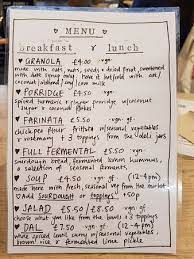 MENU
breakfast & lunch
♥ GRANOLA £4.00 ·vgn
made with oats, nuts, seeds & dried fruit, sweetened
with date syrup only. Have it hot/cold with oat/
coconut/almond/soy/cow milk
♥ PORRIDGE £4.50
spiced turmeric & ginger porridge w/coconut
sugar & coconut flakes
♥ FARINATA £5.50 ·vgn ·gf
chickpea flour frittata w/seasonal vegetables
& + 3 toppings from the deli jars
♥ FULL FERMENTAL £5.50 ·vgn
sourdough bread, fermented lemon hummus,
& selection of seasonal ferments
♥ SOUP £4.50 ·vgn ·gf (12-4pm)
made here with fresh, seasonal veg from the market
♥ Add SOURDOUGH or toppings +50p
♥ SALAD £5.50/£8.50 (12-4pm)
choose what you like from the bowls & 2 toppings
♥ DAL £7.50 ·vgn ·gf (12-4pm)
white spiced lentil curry w/seasonal vegetables
brown rice & fermented lime pickle